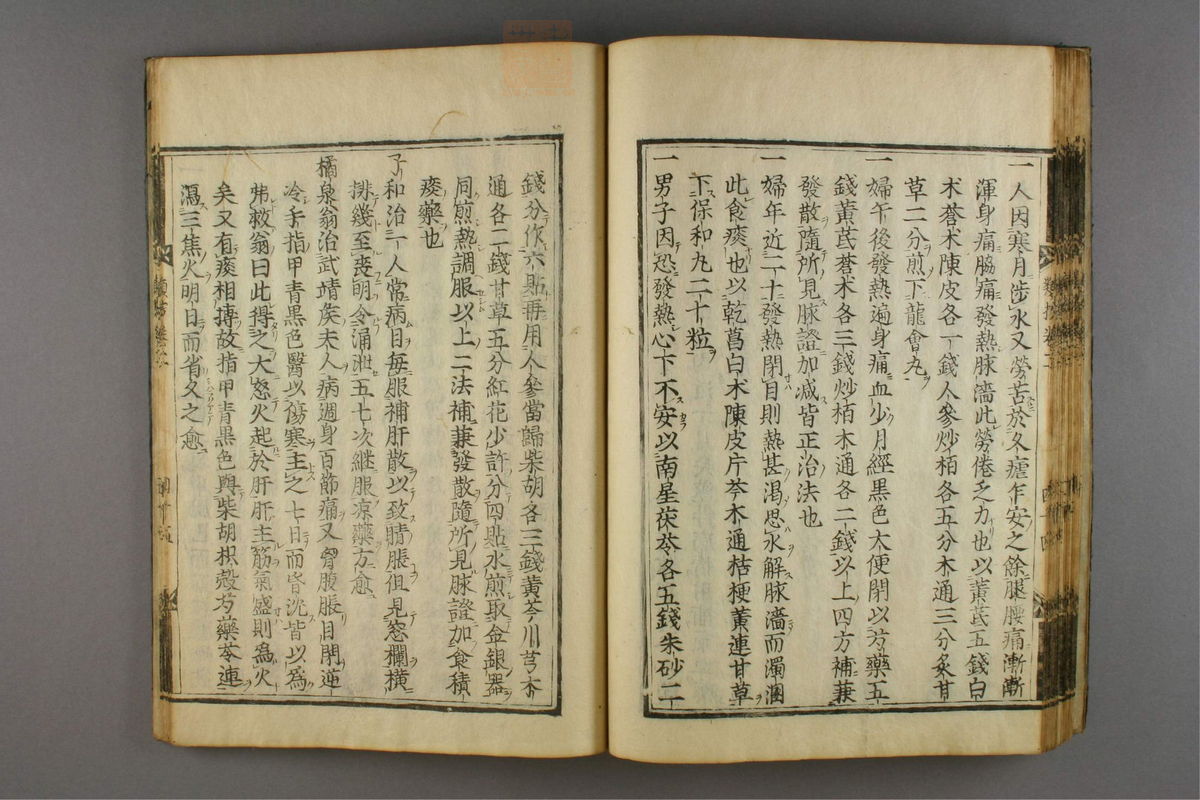 一人因寒月渉水又勞苦於久瘧乍安之餘腿腰痛漸漸
渾身痛脇痛發熱脉濇此勞倦乏力也以黃芪五錢白
术蒼术陳皮各一錢人參炒栢各五分木通三分炙甘
草二分煎下龍會丸
一婦午後發熱遍身痛血少月經黑色大便閉以芍藥五
錢黃芪蒼术各三錢炒栢木通各二錢以上四方補兼
發散隨所見脉證加减皆正治法也
一婦年近二十發熱閉目則熱甚渴思水解脉濇而濁溷
此食痰也以乾葛白术陳皮片芩木通桔梗黃連甘草
下保和丸二十粒
一男子因恐發熱心下不安以南星茯苓各五錢朱砂二
錢分作六貼再用人參當歸柴胡各三錢黃芩川芎木
通各二錢甘草五分紅花少許分四貼水煎取金銀器
同煎熱調服以上二法補兼發散隨所見脉證加食積
痰藥也
子和治一人常病目每服補肝散以致睛脹但見窓欄横
排幾至喪明令涌泄五七次継服凉藥方愈
橘泉翁治武靖矦夫人病週身百節痛又胷腹脹目閉逆
冷手指甲青黑色醫以傷寒主之七日而昏沈皆以為
弗救翁曰此得之大怒火起於肝肝主筋氣盛則為火
矣又有痰相摶故指甲青黑色與柴胡枳殼芍藥芩連
瀉三焦火明日而省久之愈